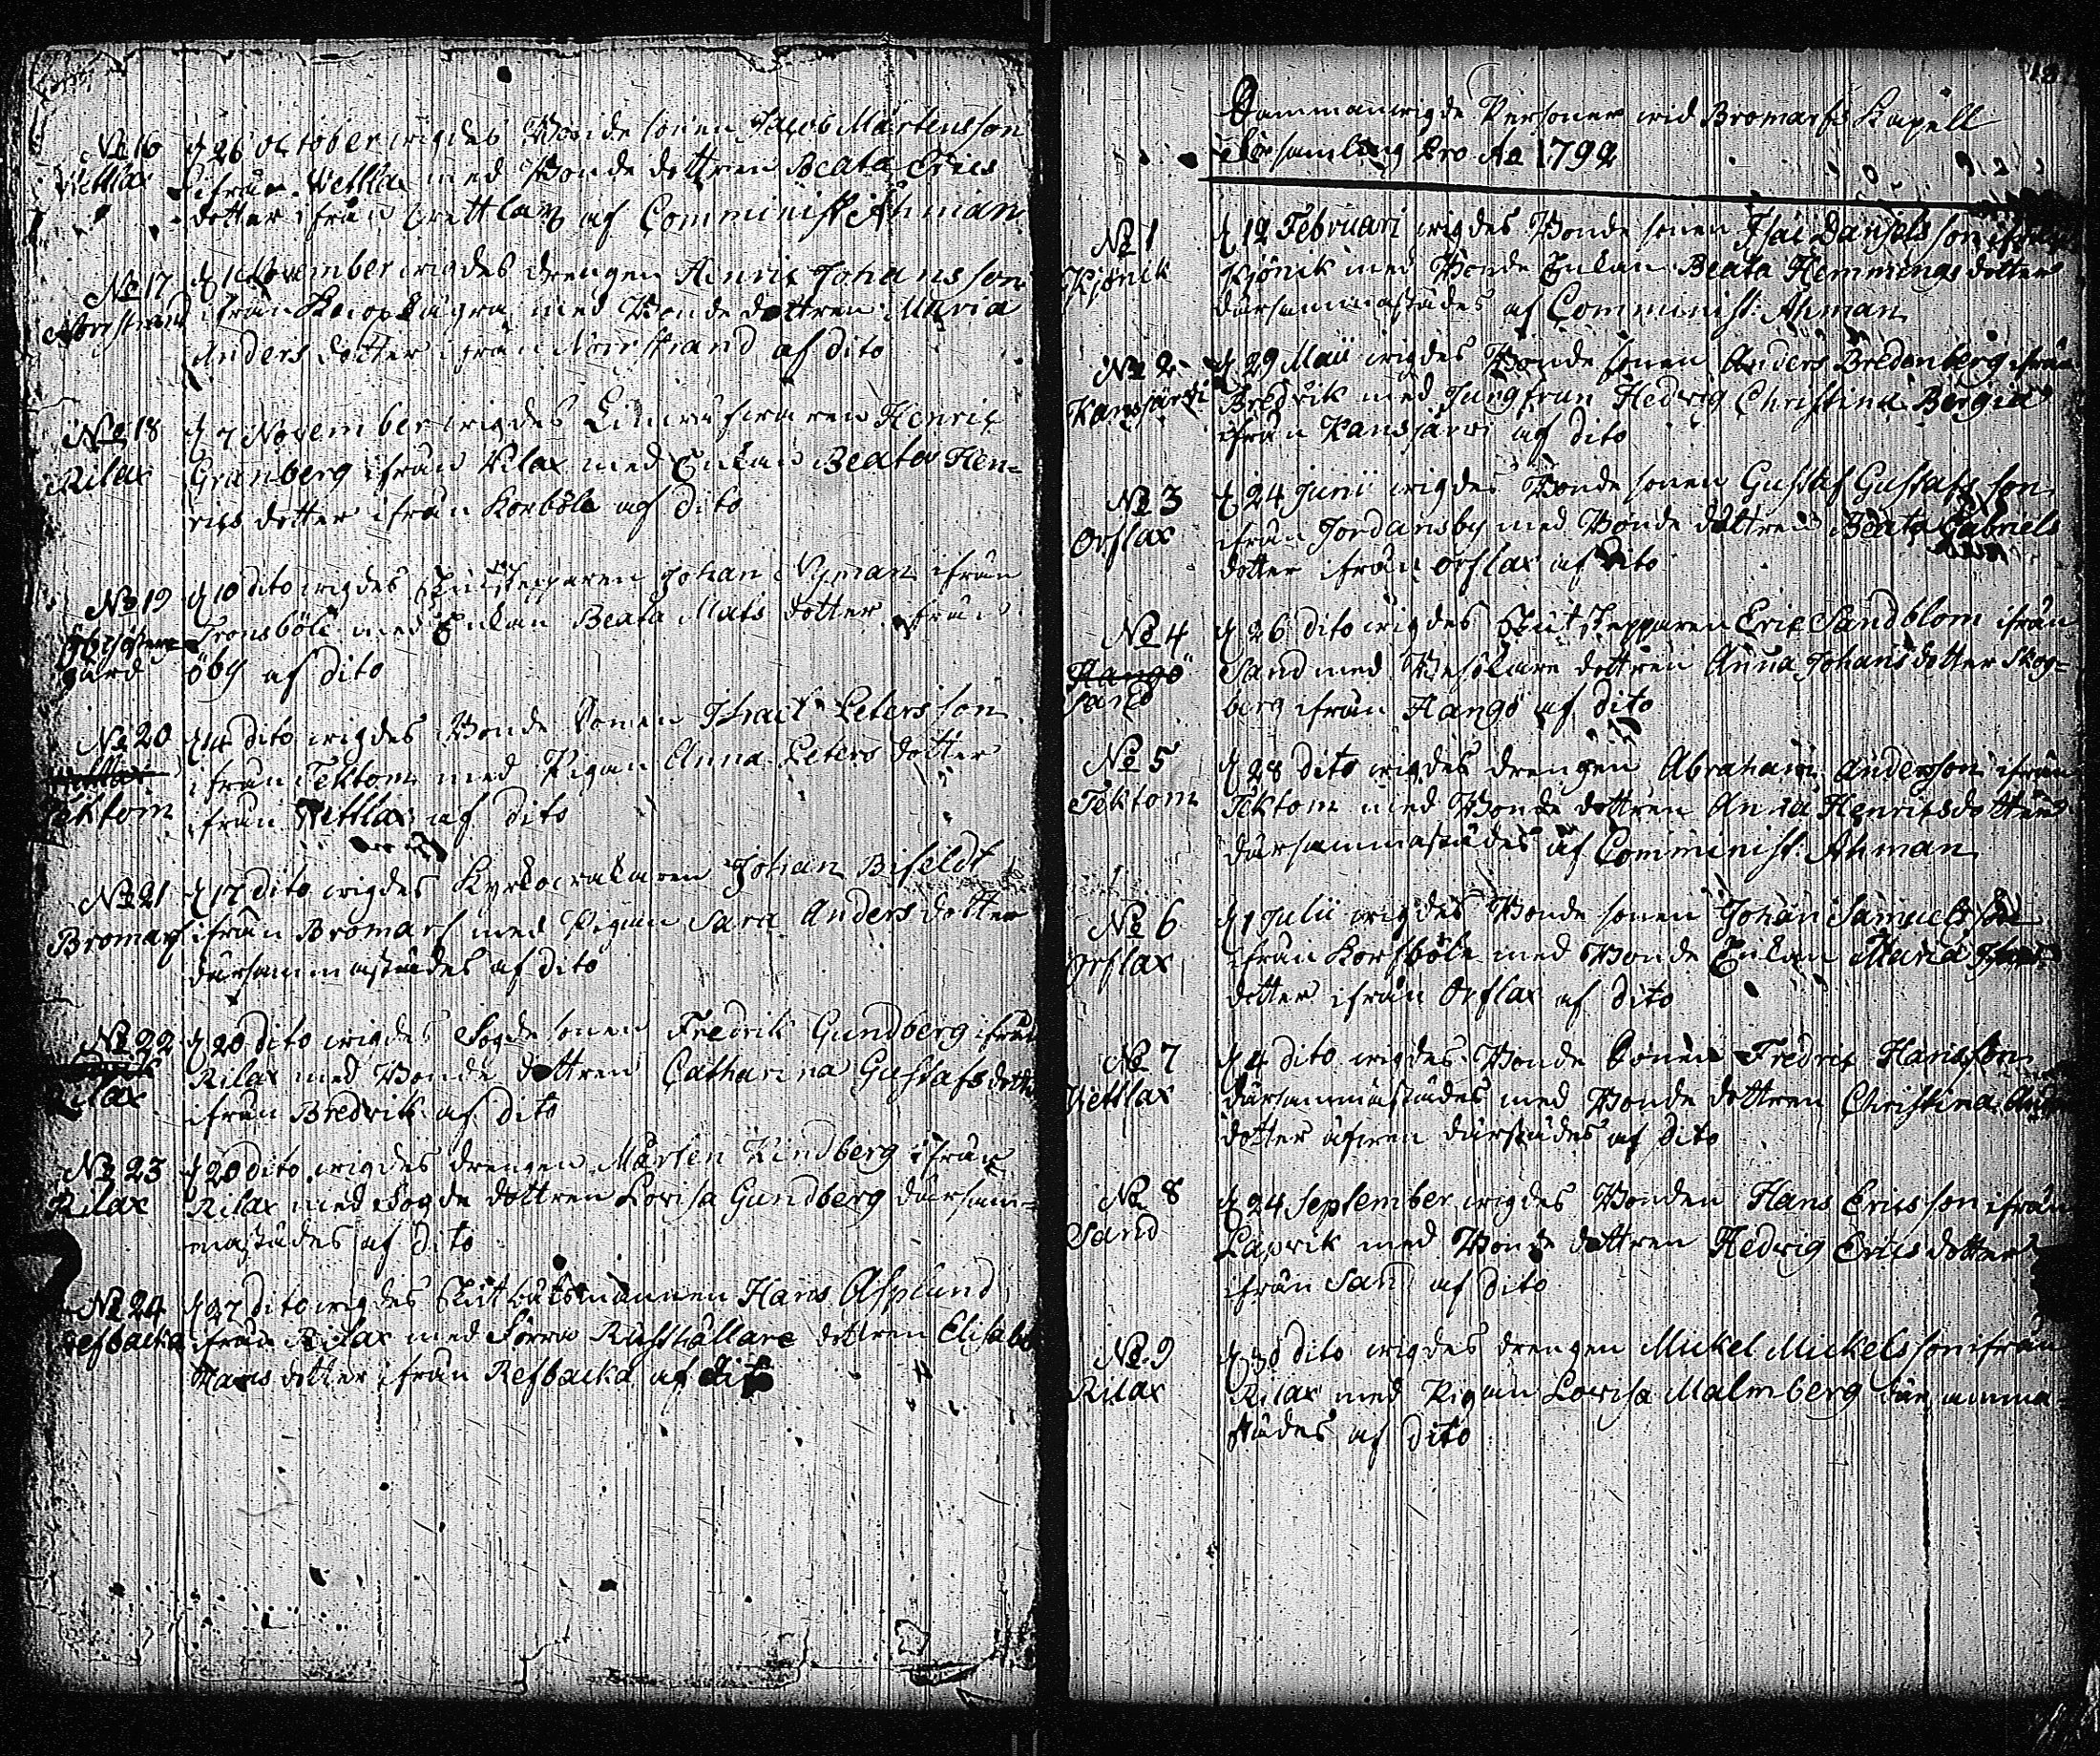 No 16
Wettlax
d 26 October wigdes Bonde sonen Jacob Mårtensson
ifrån Wettlax med Bonde dottren Beata Erics
dotter ifrån af Comminist: Åhman
No 17
Norrstrand
d 1 November wigdes drengen Henric Johansson
ifrån med Bonde dottren Maria
Anders dotter ifrån Norrstrand af dito
No 18
Rilax
d 7 November wigdes Henric
Grönberg ifrån Rilax med Enkan Beata Hen-
rics dotter ifrån Korsböle af dito
No 19
gård
d 10 dito wigdes Skutskepparen Johan Nyman ifrån
Tronsböle med Enkan Beata Mats dotter ifrån
öby af dito
No 20
Tektom
d 14 dito wigdes Bonde Sonen Israel Petersson
ifrån Tektom med Pigan Anna Peters dotter
ifrån Wettlax af dito
No 21
Bromarf
d 17 dito wigdes Kyrkowaktaren Johan Bifeldt
ifrån Bromarf med Pigan Sara Anders dotter
därsammastädes af dito
No 22
Rilax
d 20 dito wigdes Fogde sonen Fredrik Gundberg ifrån
Rilax med Bonde dottren Catharina Gustafs dotter
ifrån Bredvik af dito
No 23
Rilax
d 20 dito wigdes drengen Mårten Lindberg ifrån
Rilax med Fogde dottren Lovisa Gundberg därsam-
mastädes af dito
No 24
Refbacka
d 27 dito wigdes Skutbåtsmannen Hans Asplund
ifrån Rilax med Förra Rusthållare dottren Elisabet
Hans dotter ifrån Refbacka af dito
Sammanwigde Personer wid Bromarfs Kapell
Församling Pro Ao 1792
No 1
Kjönik
d 12 Februari wigdes Bonde sonen Isac Danielsson ifrån
Kjönik med Bonde Enkan Beata Hemmings dotter
därsammastädes af Comminist: Åhman
No 2
Kansjärvi
d 29 Maii wigdes Bonde sonen Anders Bredenberg ifrån
Bredvik med Jungfrun Hedvig Christina Bergia
ifrån Kansjärvi af dito
No 3
Orslax
d 24 Junii wigdes Bonde sonen Gustaf Gustafsson
ifrån Jordansby med Bonde dottren Beata Gabriels
dotter ifrån Orslax af dito
No 4
Hangö
Sand
d 26 dito wigdes Skutskepparen Eric Sandblom ifrån
Sand med Besökare dottren Anna Johansdotter Skog-
berg ifrån Hangö af dito
No 5
Tektom
d 28 dito wigdes drengen Abraham Andersson ifrån
Tektom med Bonde dottren Anna Henricsdotter
därsammastädes af Comminist: Åhman
No 6
Orslax
d 1 Julii wigdes Bonde sonen Johan Samuelsson
ifrån Korsböle med Bonde Enkan Maria
dotter ifrån Orslax af dito
No 7
Wettlax
d 4 dito wigdes Bonde Sonen Fredric Hansson
därsammastädes med Bonde dottren Christina
dotter äfwen därstädes af dito
No 8
Sand
d 24 September wigdes Bonden Hans Ericsson ifrån
Lapvik med Bonde dottren Hedvig Erics dotter
ifrån Sand af dito
No 9
Rilax
d 30 dito wigdes drengen Mickel Mickelsson ifrån
Rilax med Pigan Lovisa Malmberg därsamma-
städes af dito